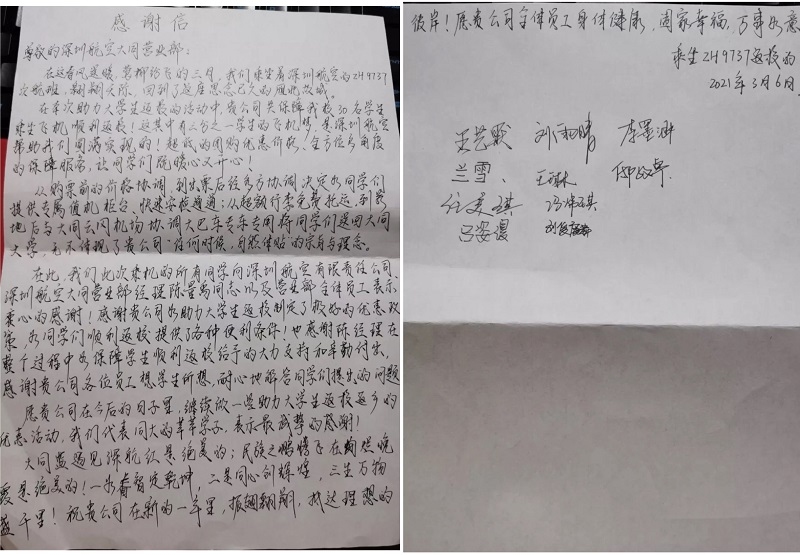 感谢信
尊敬的深圳航空大同营业部：
在这春风送暖、草柳的三月，我们乘坐着深圳航空的ZH9737
次航班，翱翔天际，回到了这座思念已久的雁北故城。
在本次助力大学生返校的活动中，贵公司共保障我校30名学生
乘坐飞机顺利返校！这其中有三分之一学生的飞机梦，是深圳航空
帮助我们圆满实现的！超低的团购优惠价格、全方位多角度
的保障服务，让同学们既暖心又开心！
从购票前的价格协调，到出票后经多方协调决定为同学们
提供专属值机柜台、快速安检通道；从超额行李免费托运，到
地后与大同云冈机场协调大巴车专车专用将同学们送回大同
大学，无不体现了贵公司"任何时候，自然体贴"的宗旨与理念。
在此，我们此次乘机的所有同学向深圳航空有限责任公司、
深圳航空大同营业部经理陈同志以及营业部全体员工表示
衷心的感谢！感谢贵公司为助力大学生返校制定了极好的优惠政
策，为同学们顺利返校提供了各种便利条件！也感谢陈经理在
整个过程中为保障学生顺利返校给予的大力支持和辛勤付出，
感谢贵公司各位员工想学生所想，耐心地解答同学们提出的问题
愿贵公司在今后的日子里，继续做一些助力大学生返校返乡的
优惠活动，我们代表同大的莘莘学子，表示最诚挚的感谢！
大同蓝遇见深航红是绝美的；民族之鹏腾飞在绚烂晚
霞是绝美的！一为睿智定乾坤，二是同心创辉煌，三生万物
盛千里！祝贵公司在新的一年里，振翅翱翔，抵达理想的
彼岸！愿贵公司全体员工身体健康，阖家幸福，万事如意
乘坐ZH9737返校的
2021年3月6日
兰雪、王琳